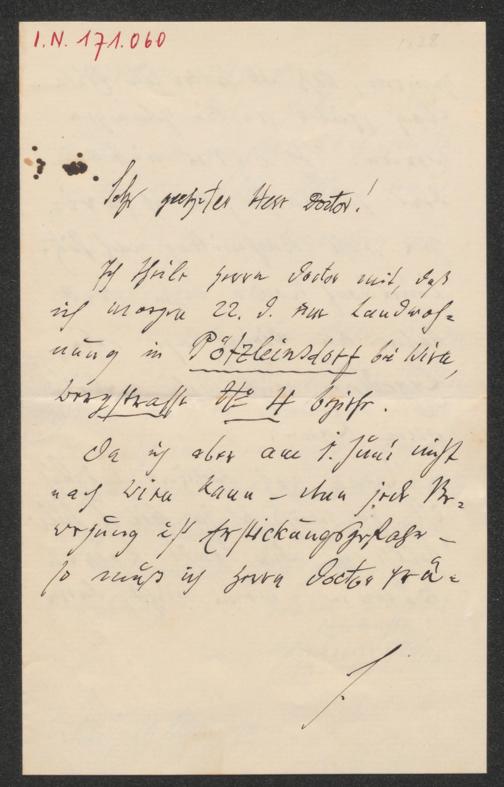 I.N. 171.060
Sehr geehrter Herr Doctor!
Ich theile Herrn Doctor mit, daß
ich morgen 22. d. eine Landwoh-
nung in Pötzleinsdorf bei Wien,
Bergstrasse № 4 beziehe.
Da ich aber am 1. Juni nicht
nach Wien kann – denn jede Be-
wegung ist Erstickungsgefahr –
so muß ich Herrn Doctor